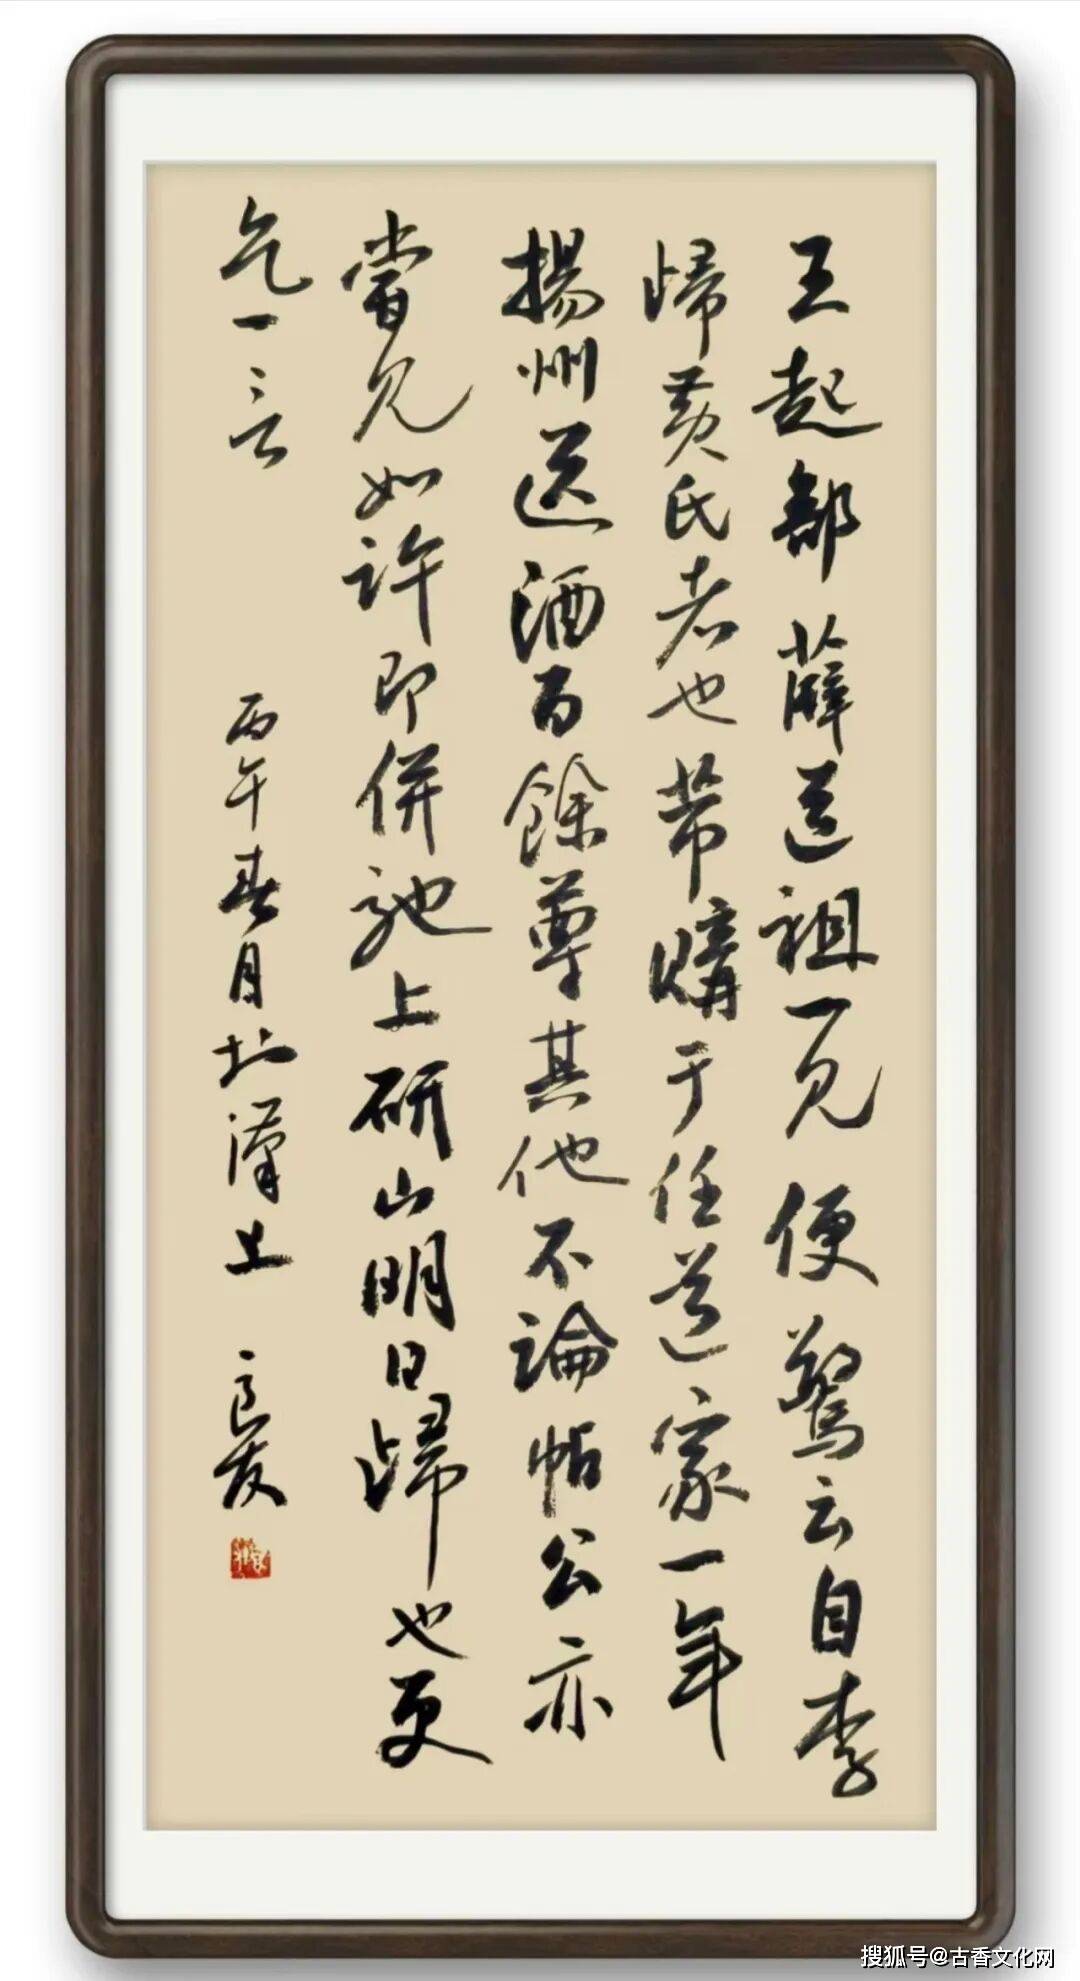 王起部薛道祖一見便驚云自李
歸黃氏者也芾購于任道家一年
揚州送酒百餘尊其他不論帖公亦
嘗見如許即併馳上研山明日歸也更
乞一言 丙午春月於漢上 良友
搜狐号@古香文化网